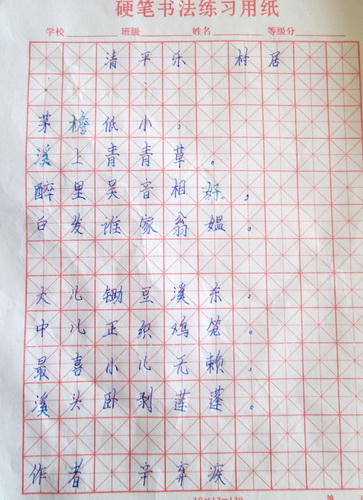 硬笔书法练习用纸
学校 班级 姓名 等级分
清平乐 村居
茅檐低小，
溪上青青草。
醉里吴音相好，
白发谁家翁媪。
大儿锄豆溪东，
中儿正织鸡笼。
最喜小儿无赖，
溪头卧剥莲蓬。
作者 辛弃疾
10×13=130 第